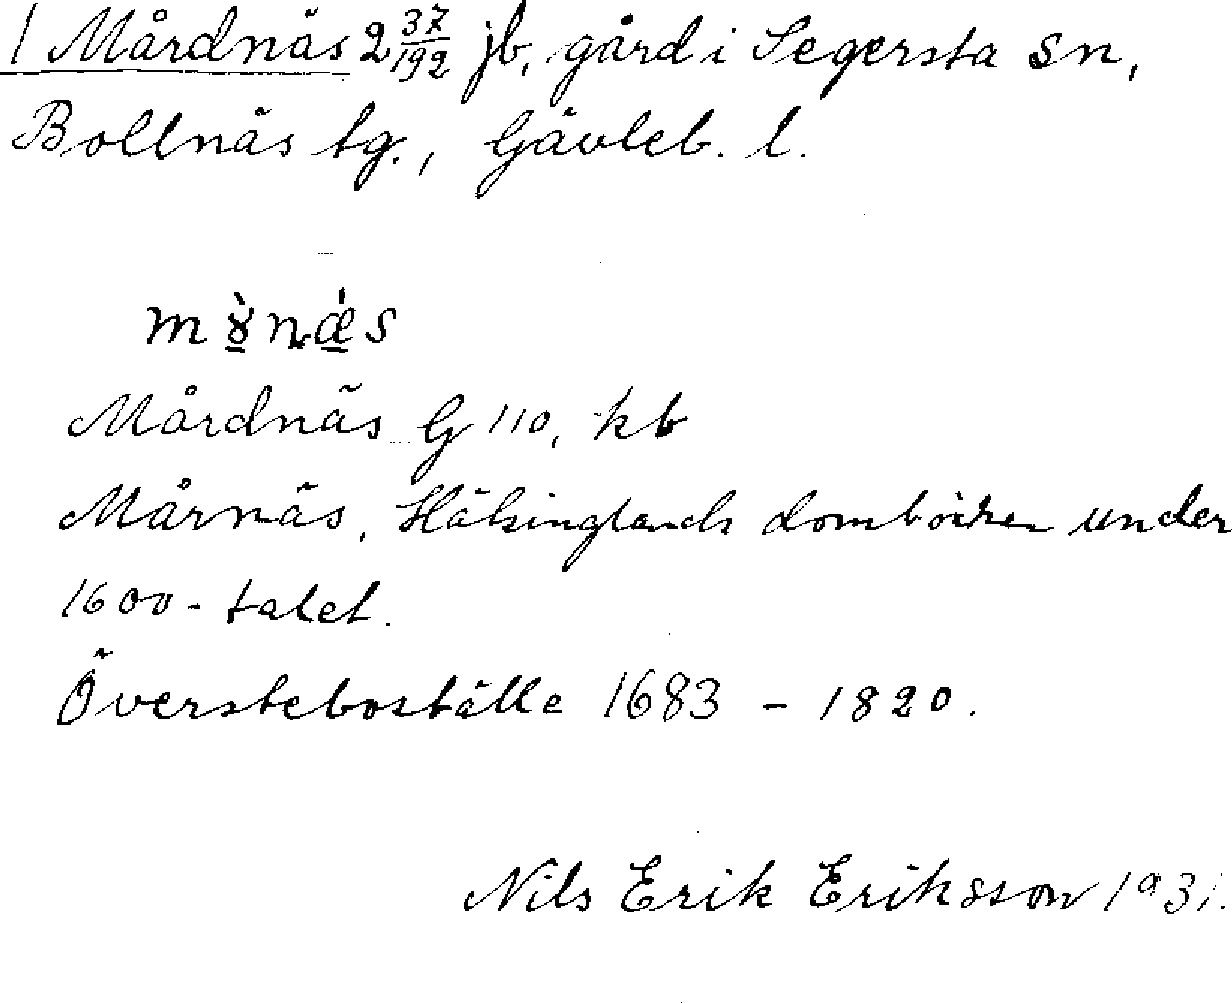 1 Mårdnäs 2 37/192 jb, gård i Segersta sn,
Bollnäs tg., Gävleb. l.
Mårdnäs G 110, kb
Mårnäs, Hälsinglands domböcker under
1600-talet.
Översteboställe 1683 - 1820.
Nils Erik Eriksson 1931.